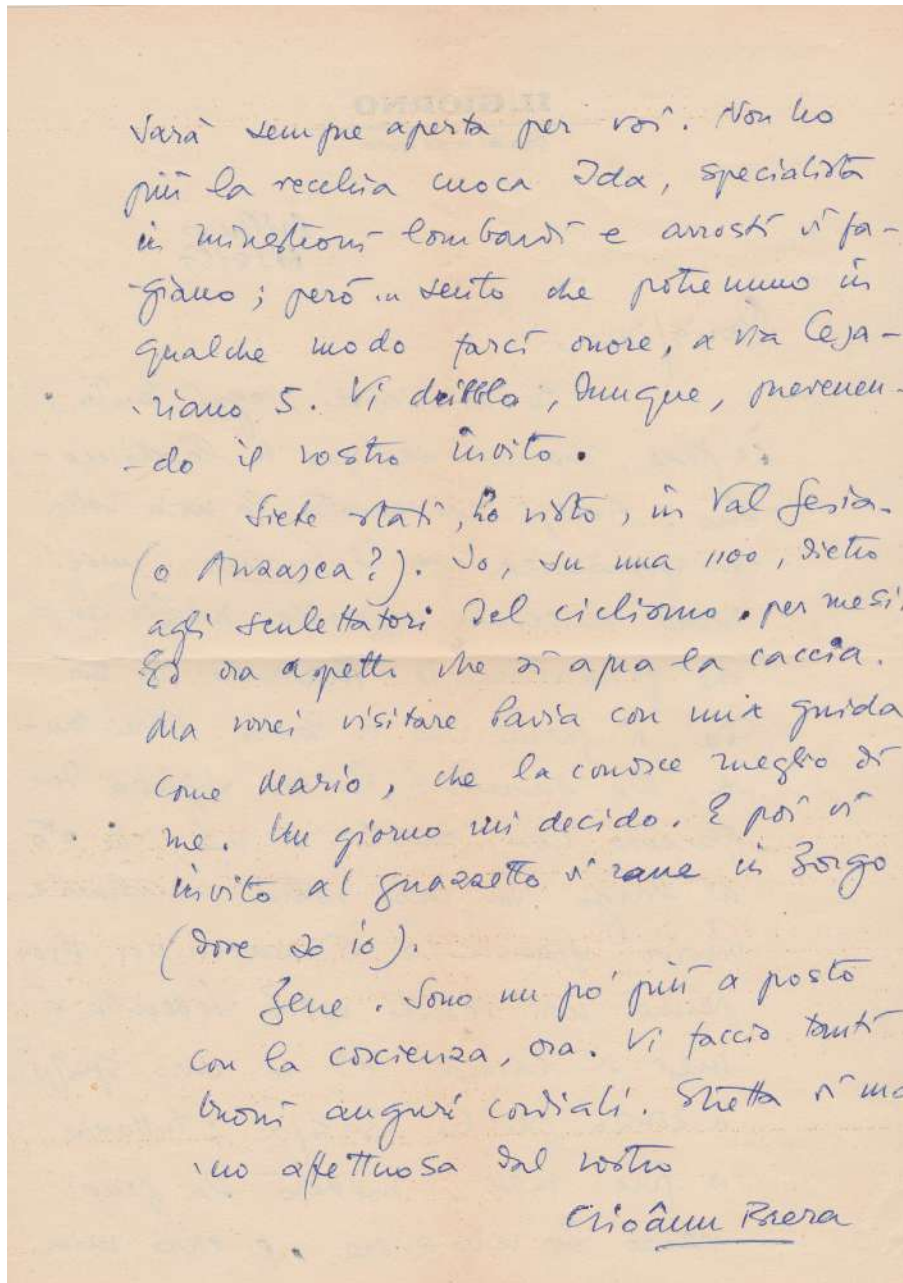 sarà sempre aperta per voi. Non ho
più la vecchia cuoca Ida, specialista
in minestroni lombardi e arrosti di fa-
-giano; però sento che potremmo in
qualche modo farci onore, a via Cesa-
-riano 5. Vi dribblo, dunque, prevenen-
-do il vostro invito.
Siete stati, ho visto, in Val Sesia
(o Anzasca?). Io, su una 1100, dietro
agli sculettatori del ciclismo, per mesi.
Ed ora aspetto che si apra la caccia.
Ma vorrei visitare Pavia con una guida
come Mario, che la conosce meglio di
me. Un giorno mi decido. E poi vi
invito al guazzetto di rane in Borgo
(dove so io).
Bene. Sono un po' più a posto
con la coscienza, ora. Vi faccio tanti
buoni auguri cordiali. Stretta di ma
-no affettuosa dal vostro
Gioânn Brera
IL GIORNO